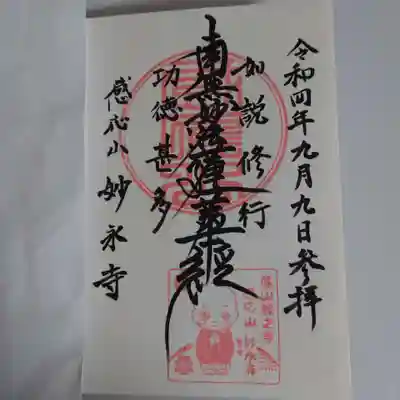 令和四年九月九日参拝
如説修行
南無妙法蓮華経
功徳甚多
感応山
妙永寺